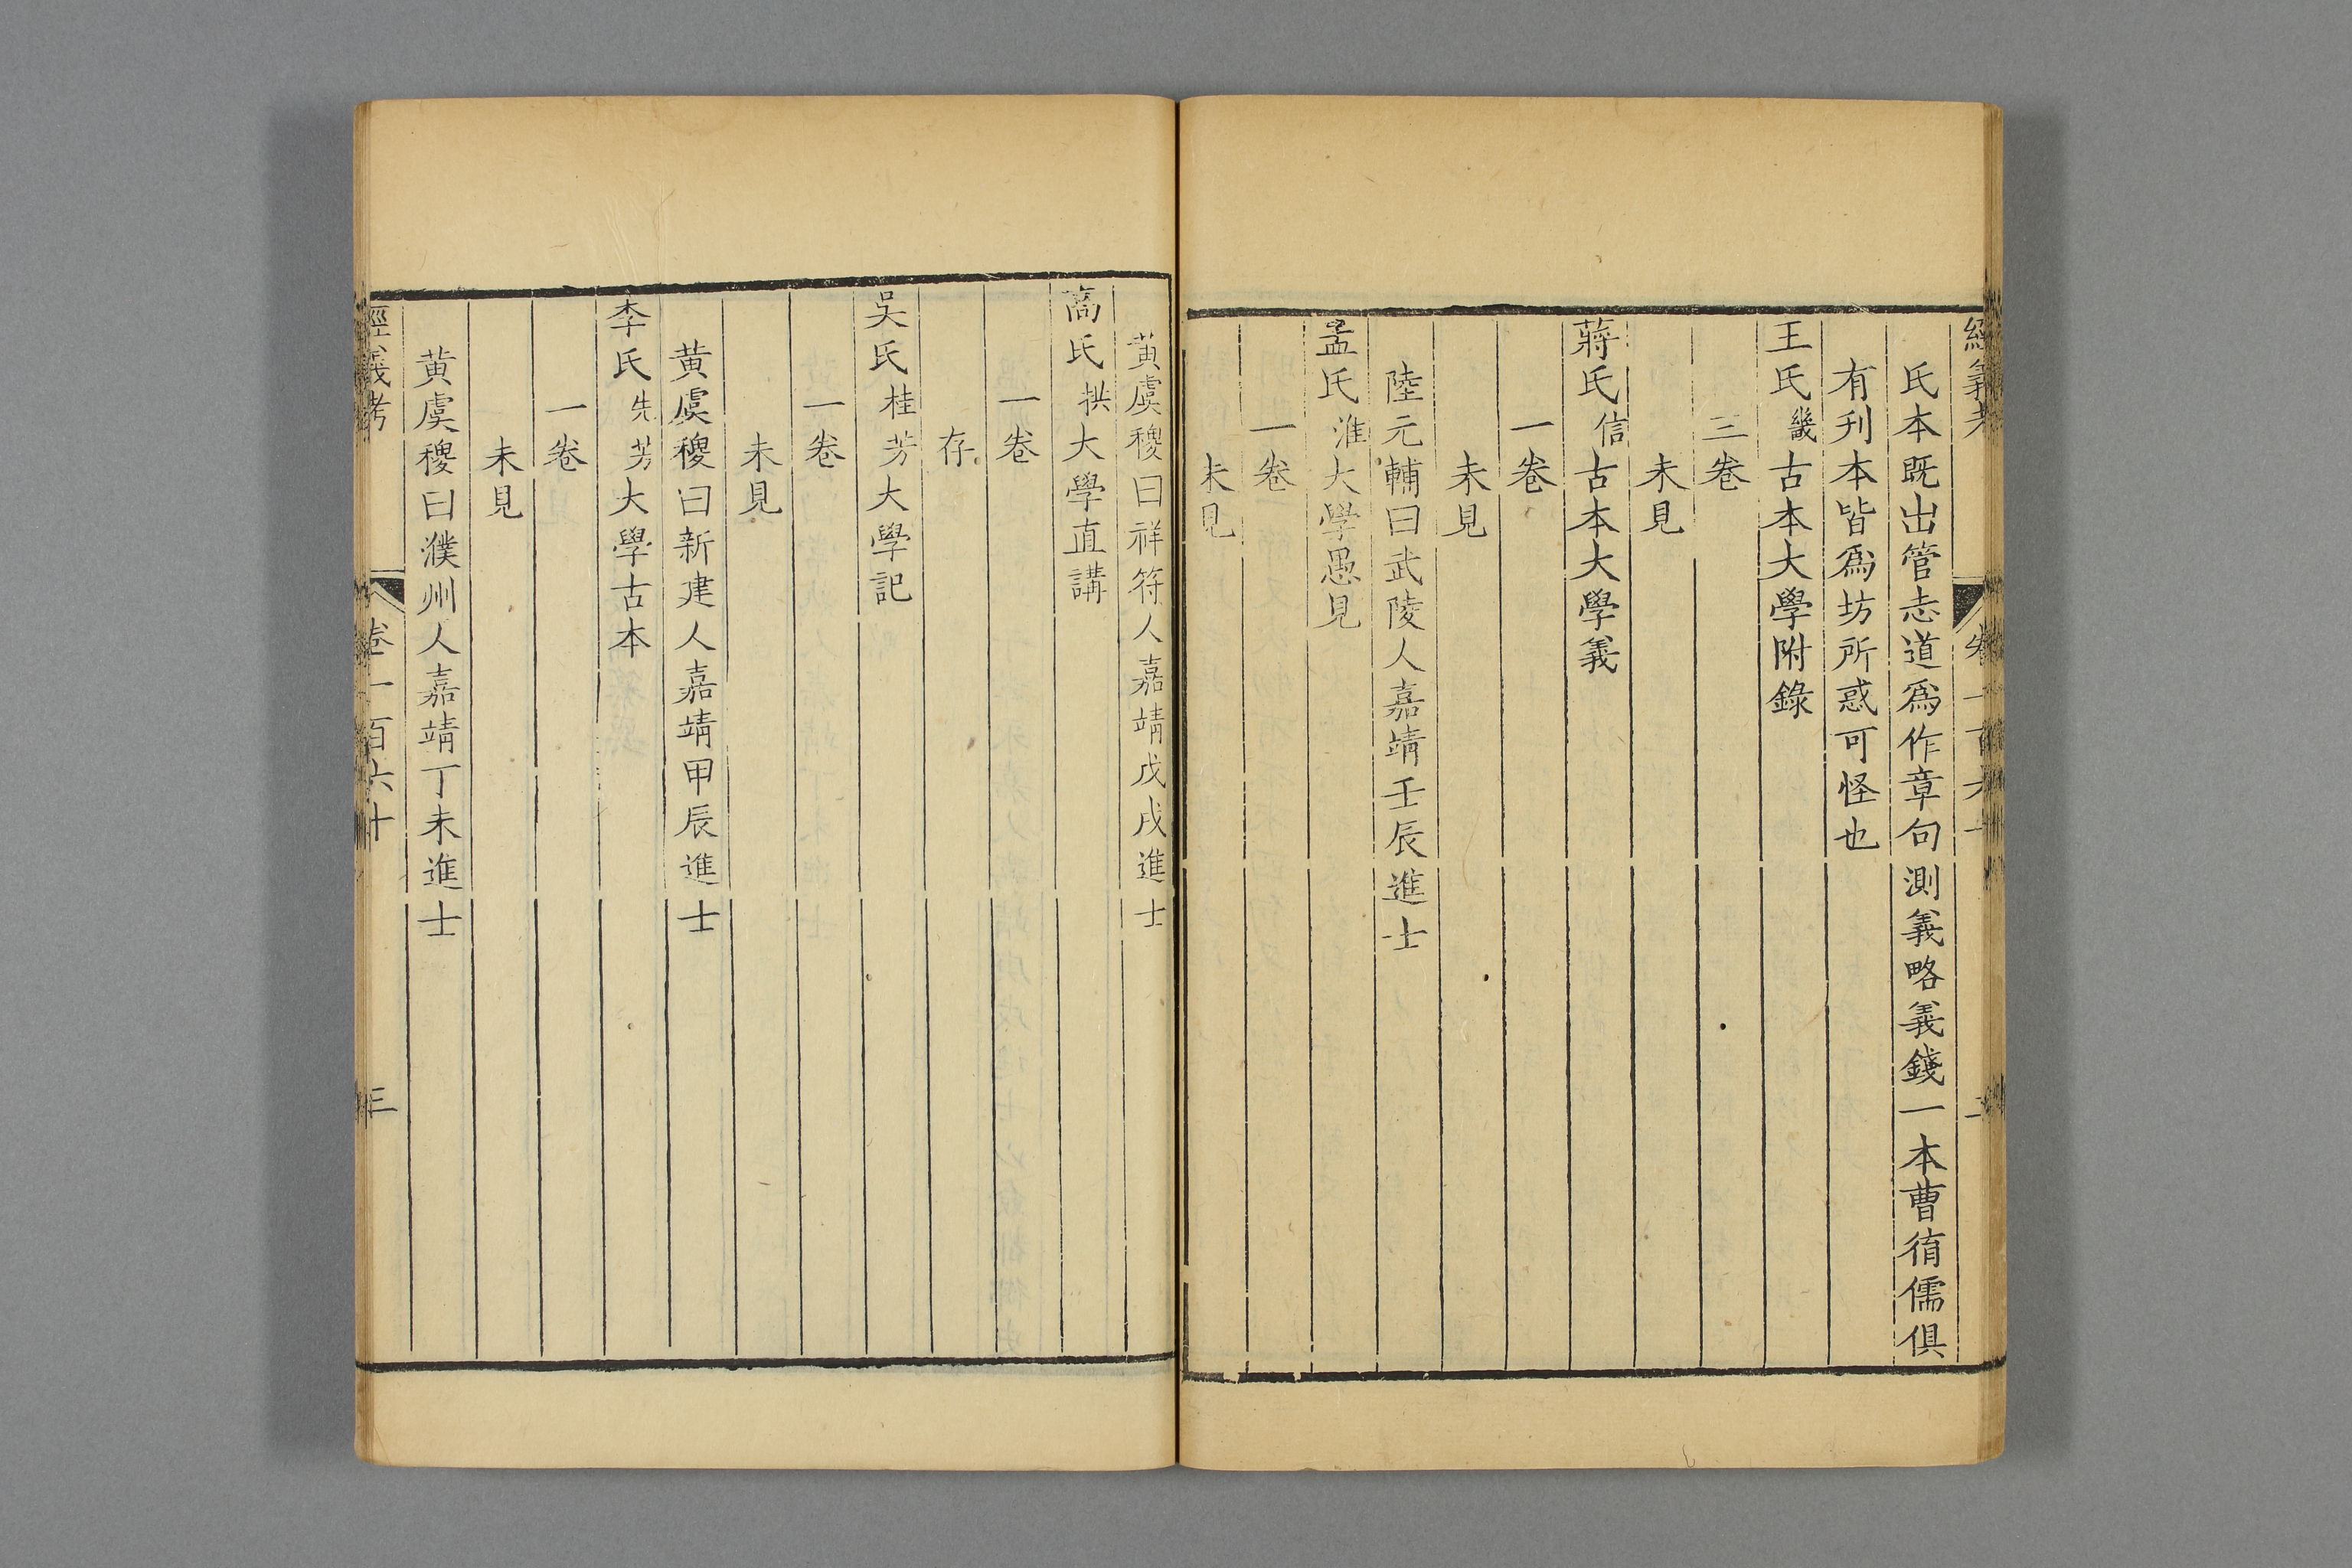 經義考
卷一百六十
氏本既出管志道爲作章句測義略義錢一本曹䘕儒俱
有刊本皆爲坊所惑可怪也
王氏畿古本大學附錄
三卷
未見
蔣氏信古本大學義
一卷
未見
陸元輔曰武陵人嘉靖壬辰進士
孟氏淮大學愚見
一卷
未見
黃虞稷曰祥符人嘉靖戊戌進士
高氏拱大學直講
一卷
存
吳氏桂芳大學記
一卷
未見
黃虞稷曰新建人嘉靖甲辰進士
李氏先芳大學古本
一卷
未見
黃虞稷曰濮州人嘉靖丁未進士
經義考
卷一百六十
三